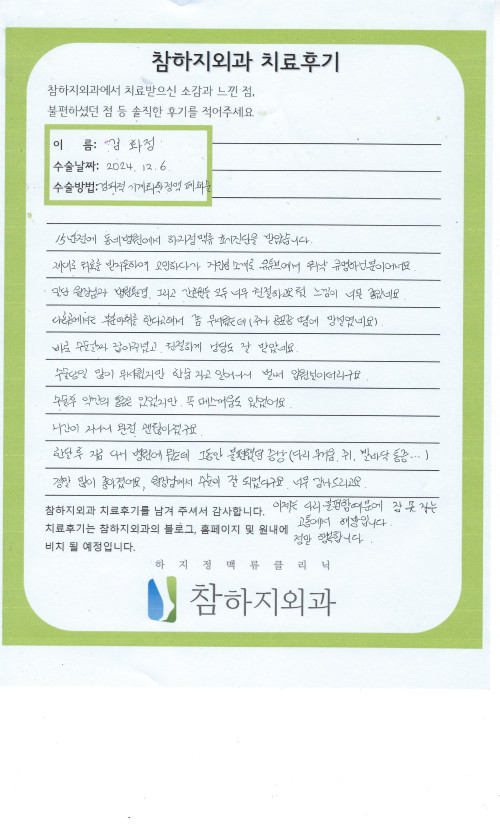 참하지외과 치료후기
참하지외과에서 치료받으신 소감과 느낀 점,
불편하셨던 점 등 솔직한 후기를 적어주세요
이 름: 김
수술날짜: 2024. 12. 6.
수술방법:
15년전에 동네병원에서 하지정맥류 초기진단을 받았습니다.
제대로 치료를 받지못하여 고민하다가 지인의 소개로 유튜브에서 워낙 유명하신분이어서요.
일단 원장님과 병원환경, 그리고 간호원들 모두 너무 친절하고요 첫 느낌이 너무 좋았네요.
해서 좀 무서웠는데
바로 수술날짜 잡아주셨고, 친절하게 상담도 잘 받았네요.
수술당일 많이 무서웠지만 한숨 자고 일어나니 벌써 입원실이더라구요.
수술후 약간의 통증은 있었지만. 또 메스꺼움도 있었어요.
시간이 지나니 완전 괜찮아졌구요.
한달후 지금 다시 병원에 왔는데 그동안 불편했던 증상 (다리 무거움. 쥐, 발바닥 통증... )
정말 많이 좋아졌어요, 원장님께서 수술이 잘 되었다구요. 너무 감사드리고요.
이제는 다리 불편함때문에 잠 못 자는
고통에서 해방입니다.
정말 행복합니다.
참하지외과 치료후기를 남겨 주셔서 감사합니다.
치료후기는 참하지외과의 블로그, 홈페이지 및 원내에
비치 될 예정입니다.
하 지 정 맥 류 클 리 닉
참하지외과